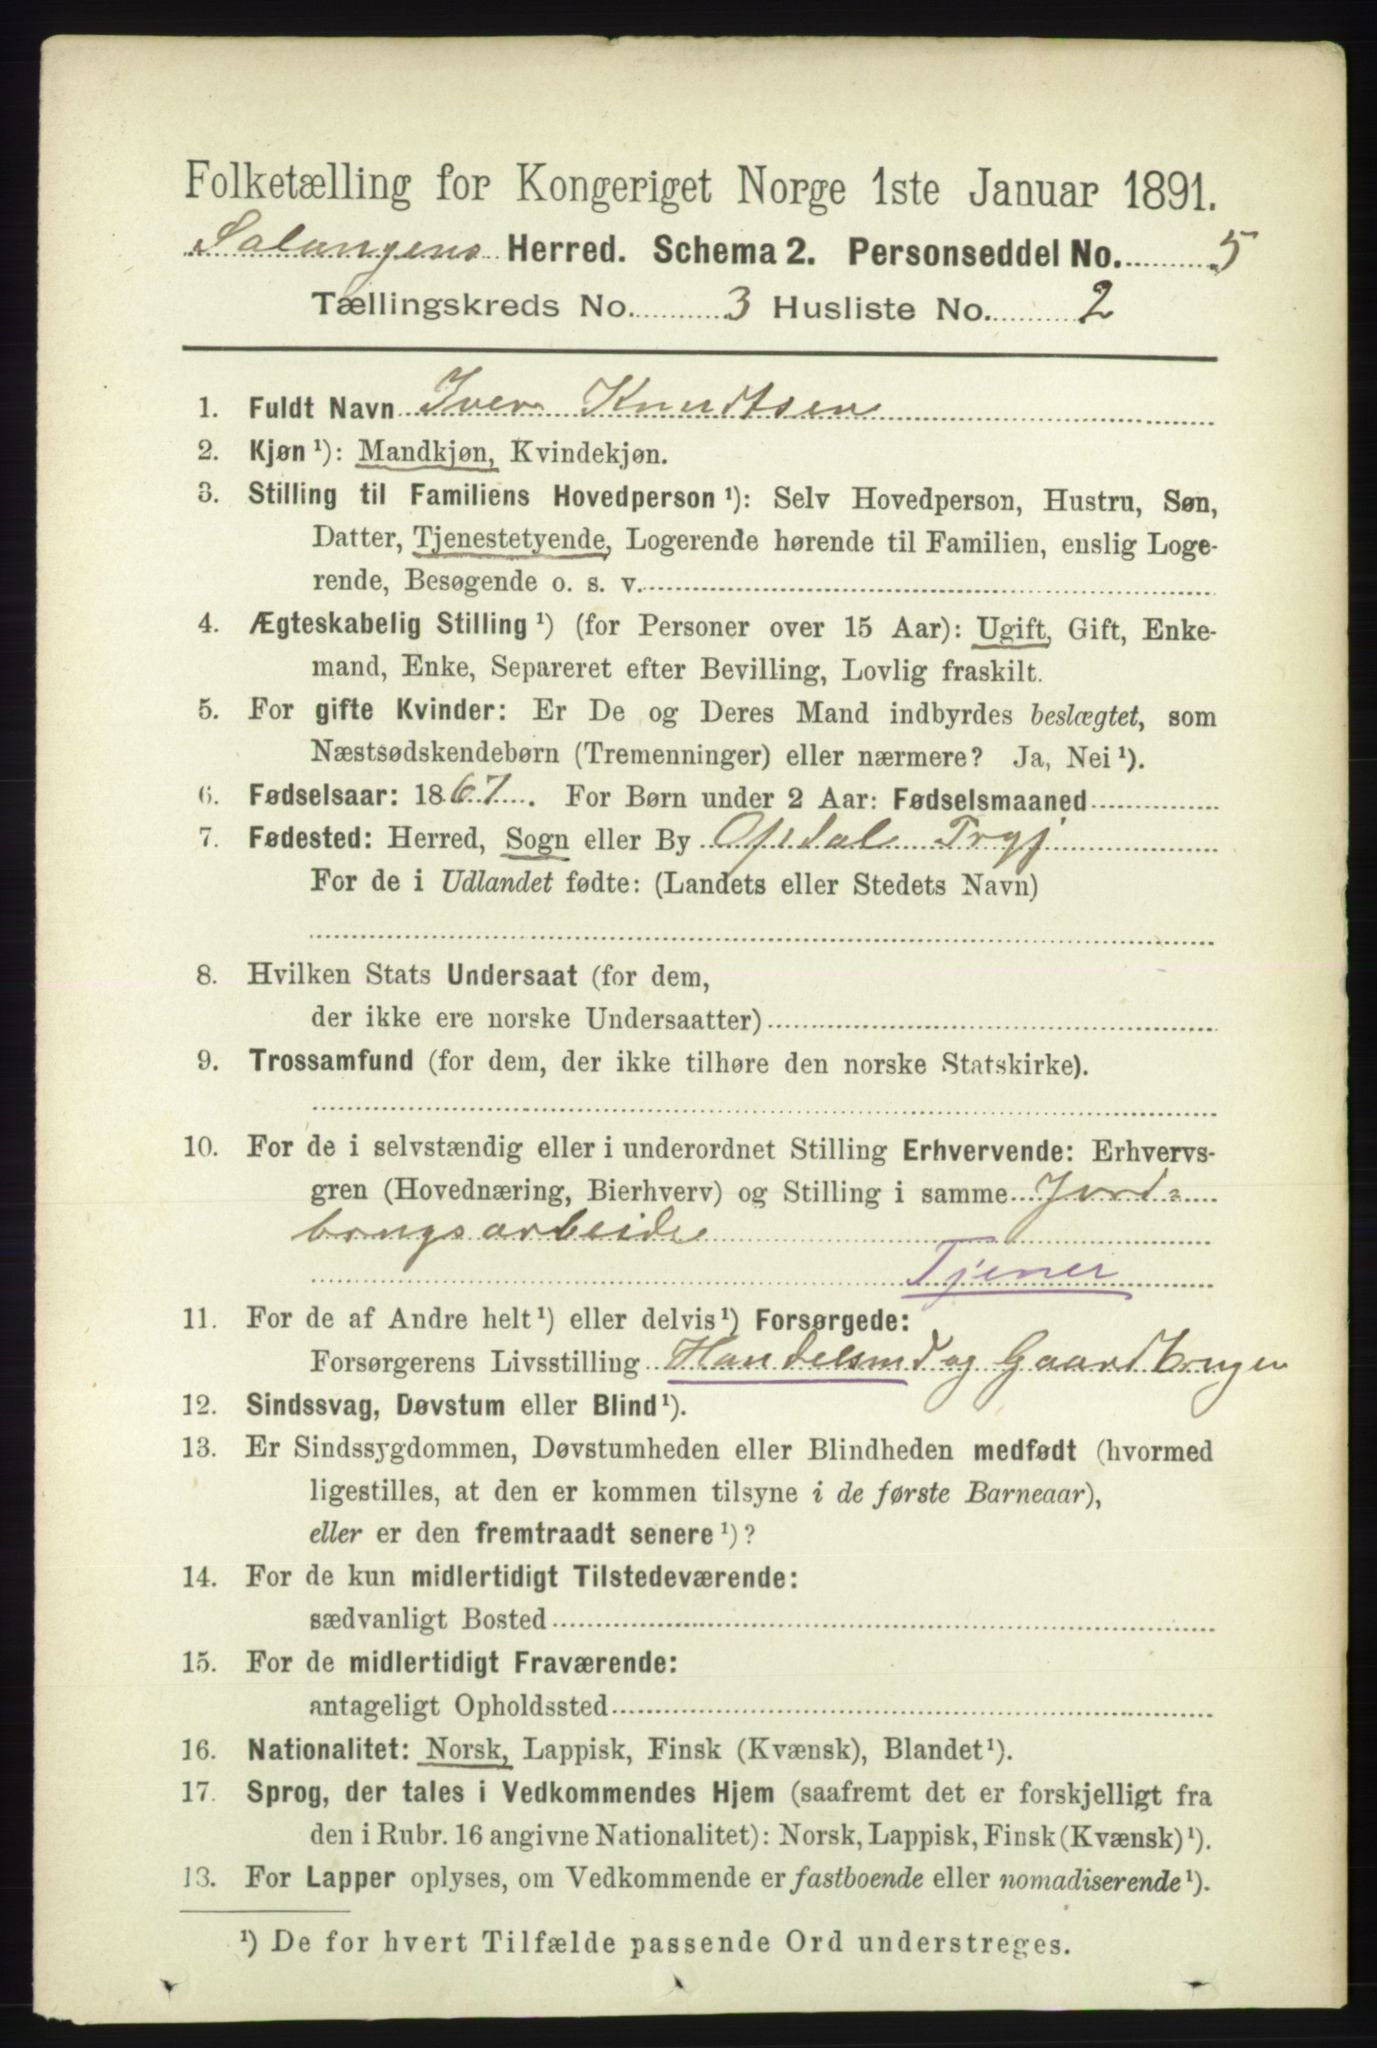 Folketælling for Kongeriget Norge 1ste Januar 1891.
Salangens Herred. Schema 2. Personseddel No. 5
Tællingskreds No. 3 Husliste No. 2
1. Fuldt Navn Iver Knudtsen
2. Kjøn ¹): Mandkjøn, Kvindekjøn.
3. Stilling til Familiens Hovedperson ¹): Selv Hovedperson, Hustru, Søn,
Datter, Tjenestetyende, Logerende hørende til Familien, enslig Loge-
rende, Besøgende o. s. v.
4. Ægteskabelig Stilling ¹) (for Personer over 15 Aar): Ugift, Gift, Enke-
mand, Enke, Separeret efter Bevilling, Lovlig fraskilt.
5. For gifte Kvinder: Er De og Deres Mand indbyrdes beslægtet, som
Næstsødskendebørn (Tremenninger) eller nærmere? Ja, Nei ¹).
6. Fødselsaar: 1867. For Børn under 2 Aar: Fødselsmaaned
7. Fødested: Herred, Sogn eller By Opdal Trhj
For de i Udlandet fødte: (Landets eller Stedets Navn)
8. Hvilken Stats Undersaat (for dem,
der ikke ere norske Undersaatter)
9. Trossamfund (for dem, der ikke tilhøre den norske Statskirke).
10. For de i selvstændig eller i underordnet Stilling Erhvervende: Erhvervs-
gren (Hovednæring, Bierhverv) og Stilling i samme Jord-
brugsarbeide
Tjener
11. For de af Andre helt ¹) eller delvis ¹) Forsørgede:
Forsørgerens Livsstilling Handelsmd og Gaardbruger
12. Sindssvag, Døvstum eller Blind ¹).
13. Er Sindssygdommen, Døvstumheden eller Blindheden medfødt (hvormed
ligestilles, at den er kommen tilsyne i de første Barneaar),
eller er den fremtraadt senere ¹)?
14. For de kun midlertidigt Tilstedeværende:
sædvanligt Bosted
15. For de midlertidigt Fraværende:
antageligt Opholdssted
16. Nationalitet: Norsk, Lappisk, Finsk (Kvænsk), Blandet ¹).
17. Sprog, der tales i Vedkommendes Hjem (saafremt det er forskjelligt fra
den i Rubr. 16 angivne Nationalitet): Norsk, Lappisk, Finsk (Kvænsk) ¹).
13. For Lapper oplyses, om Vedkommende er fastboende eller nomadiserende ¹).
¹) De for hvert Tilfælde passende Ord understreges.